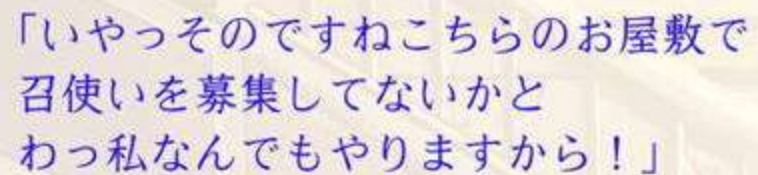 「いやっそのですねこちらのお屋敷で
召使いを募集してないかと
わっ私なんでもやりますから！」